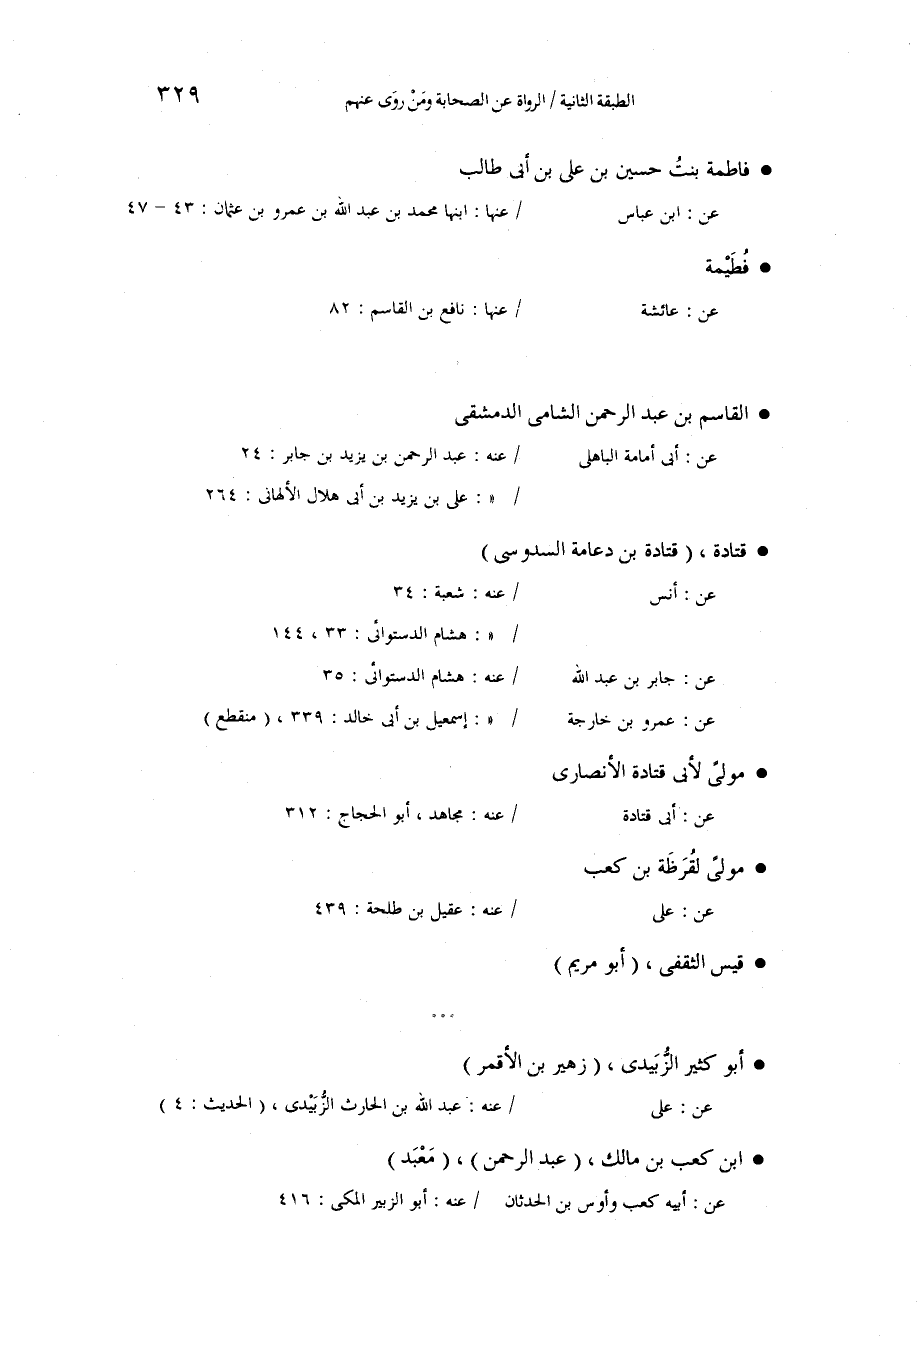 الطبقة الثانية / الرواة عن الصحابة ومَنْ روَى عنهم ٣٢٩
● فاطمة بنتُ حسين بن على بن أبى طالب
عن : ابن عباس / عنها : ابنها محمد بن عبد الله بن عمرو بن عثمان : ٤٣ – ٤٧
● فُطَيْمة
عن : عائشة / عنها : نافع بن القاسم : ٨٢
● القاسم بن عبد الرحمن الشامى الدمشقى
عن : أبى أمامة الباهلى / عنه : عبد الرحمن بن يزيد بن جابر : ٢٤
/ » : على بن يزيد بن أبى هلال الألهانى : ٢٦٤
● قتادة ، ( قتادة بن دعامة السدوسى )
عن : أنس / عنه : شعبة : ٣٤
/ » : هشام الدستوائى : ٣٣ ، ١٤٤
عن : جابر بن عبد الله / عنه : هشام الدستوائى : ٣٥
عن : عمرو بن خارجة / » : إسمعيل بن أبى خالد : ٣٣٩ ، ( منقطع )
● مولىً لأبى قتادة الأنصارى
عن : أبى قتادة / عنه : مجاهد ، أبو الحجاج : ٣١٢
● مولىً لقُرَظَة بن كعب
عن : على / عنه : عقيل بن طلحة : ٤٣٩
● قيس الثقفى ، ( أبو مريم )
° ° °
● أبو كثير الزُّبَيدى ، ( زهير بن الأقمر )
عن : على / عنه : عبد الله بن الحارث الزُّبَيْدى ، ( الحديث : ٤ )
● ابن كعب بن مالك ، ( عبد الرحمن ) ، ( مَعْبَد )
عن : أبيه كعب وأوس بن الحدثان / عنه : أبو الزبير المكى : ٤١٦